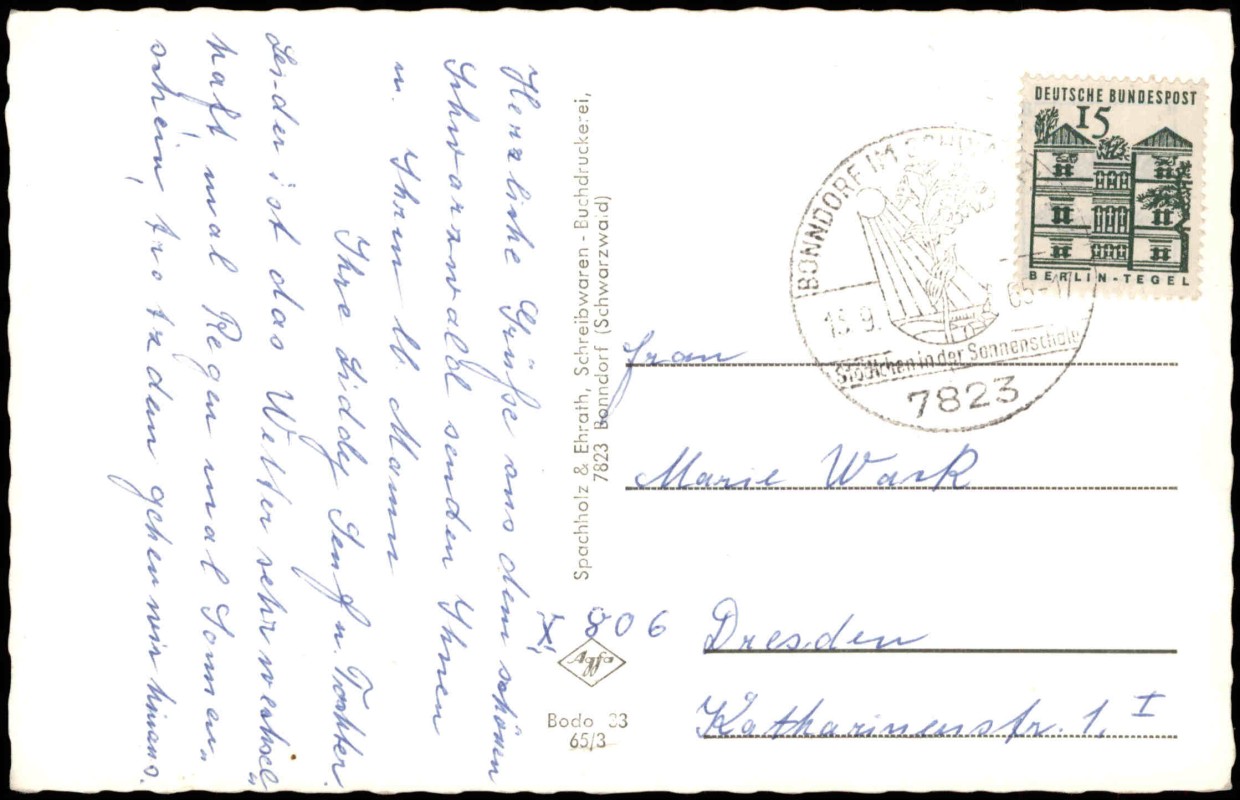 Herzliche Grüße aus dem schönen
Schwarzwald senden Ihnen
u. Ihrem lb. Mann
Ihre Liddy Senf u. Tochter.
Leider ist das Wetter sehr wechsel„
haft mal Regen mal Sonnen„
schein, trotzdem gehen wir hinaus.
Spachholz & Ehrath, Schreibwaren - Buchdruckerei,
7823 Bonndorf (Schwarzwald)
Agfa
Bodo 33
65/3
DEUTSCHE BUNDESPOST
15
BERLIN-TEGEL
BONNDORF IM
Städtchen in der Sonnenschale
7823
Frau
Marie Wark
X 806 Dresden
Katharinenstr. 1. I